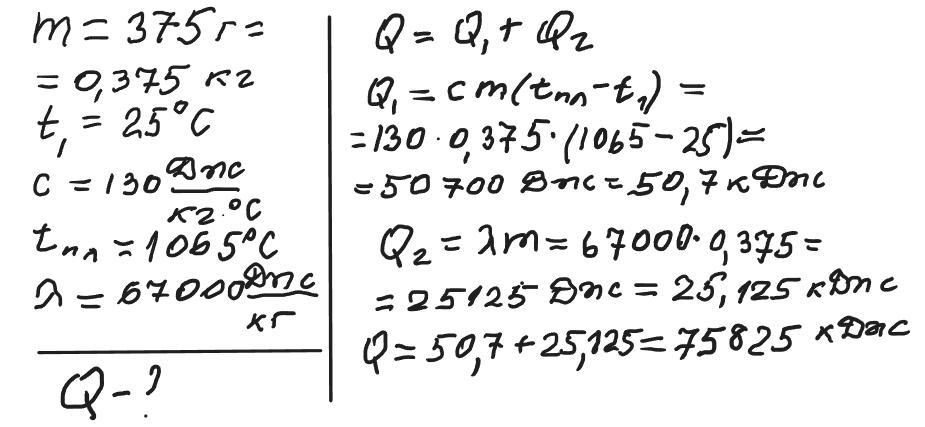 m = 375 г =
= 0,375 кг
t₁ = 25°C
c = 130 Дж/кг·°C
tпл = 1065°C
λ = 67000 Дж/кг
Q - ?
Q = Q₁ + Q₂
Q₁ = cm(tпл - t₁) =
= 130 · 0,375 · (1065 - 25) =
= 50700 Дж = 50,7 кДж
Q₂ = λm = 67000 · 0,375 =
= 25125 Дж = 25,125 кДж
Q = 50,7 + 25,125 = 75825 кДж